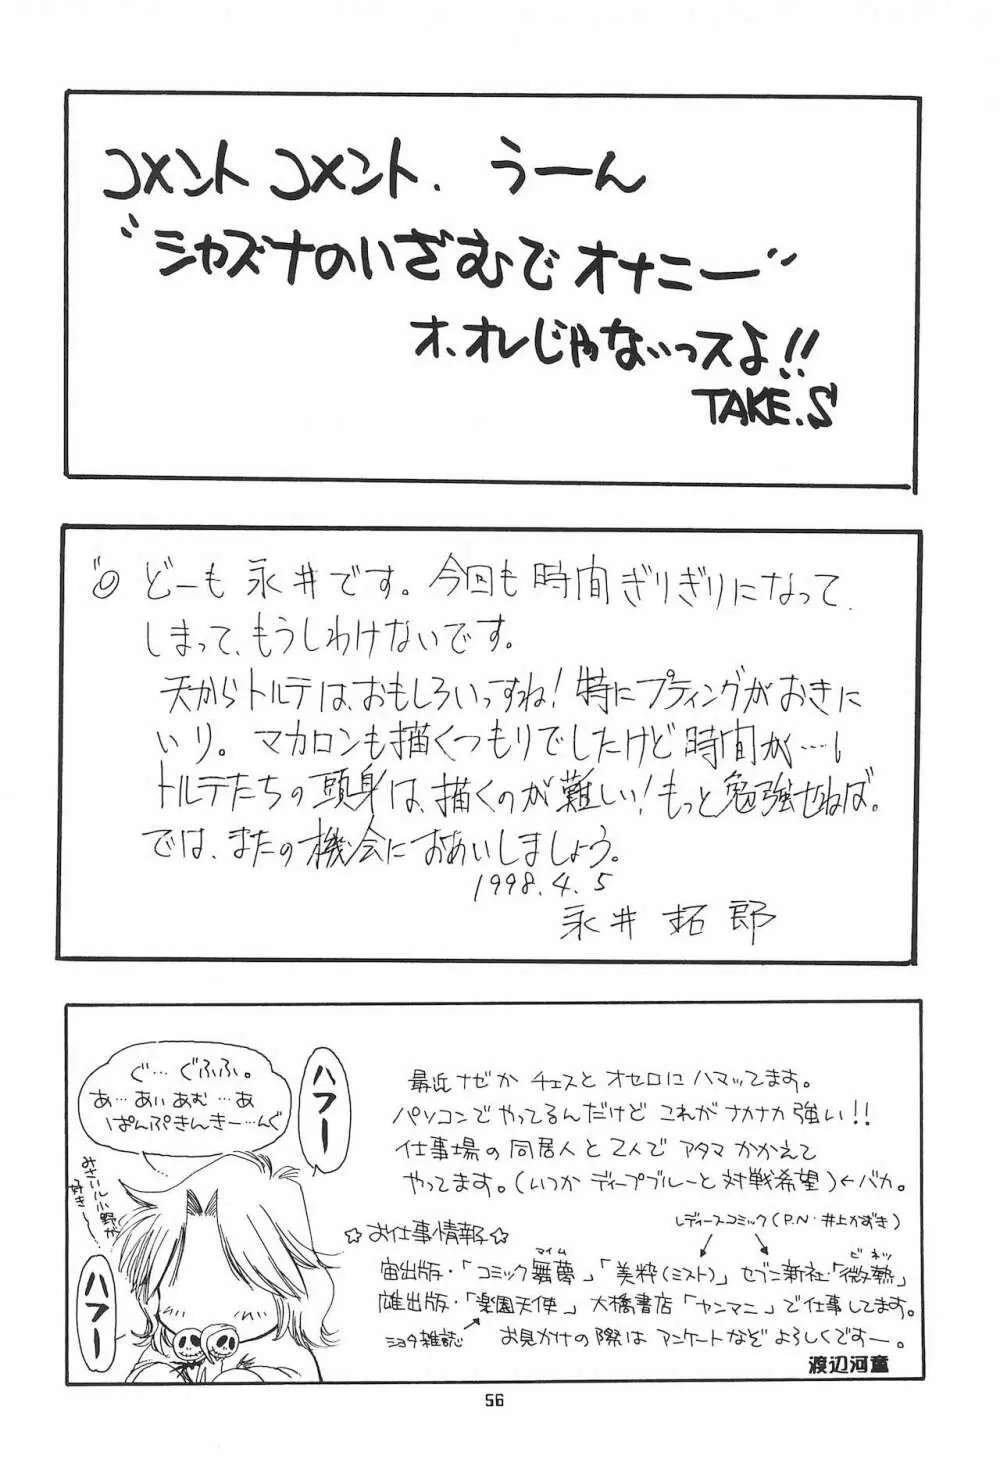 コメント コメント. うーん
"シャズナのいざむでオナニー"
オ、オレじゃないっスよ!!
TAKE.S
どーも 永井です。今回も時間ぎりぎりになって
しまって、もうしわけないです。
天からトルテは、おもしろいっすね!特にプディングがおきに
いり。マカロンも描くつもりでしたけど時間が…。
トルテたちの頭身は、描くのが難しい!もっと勉強せねば。
では、またの機会におあいしましょう。
1998.4.5
永井 拓郎
ぐ…ぐふふ。
あ…あい あむ…あ
ぱんぷきんきー…んぐ
ハフー
みさいル小野が
好き
ハフー
最近 ナゼか チェスと オセロに ハマッてます。
パソコンで やってるんだけど これが ナカナカ 強い!!
仕事場の 同居人と 2人で アタマ かかえて
やってます。(いつか ディープブルーと 対戦希望)←バカ。
レディースコミック(P.N・井上かずき)
☆お仕事情報☆
宙出版・「コミック舞夢」「美粋(ミスト)」 セブン新社「微熱」
マイム
ビネツ
雄出版・「楽園天使」 大橋書店「ヤンマニ」で仕事してます。
ショタ雑誌
お見かけの際は アンケートなぞ よろしくですー。
渡辺河童
56